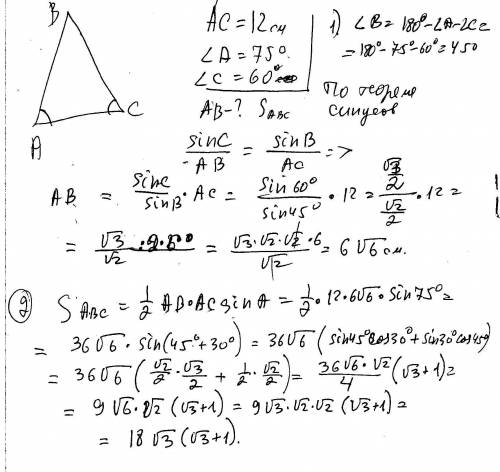 B
A
C
AC = 12 см
∠A = 75°
∠C = 60°
AB - ? S_ABC
1) ∠B = 180° - ∠A - ∠C =
= 180° - 75° - 60° = 45°
По теореме
синусов
sinC/AB = sinB/AC =>
AB = sinC/sinB · AC = sin60°/sin45° · 12 = (√3/2)/(√2/2) · 12 =
= √3/√2 · 2 · 6 = √3·√2·√2·6/√2 = 6√6 см.
2) S_ABC = 1/2 AB·AC sinA = 1/2 · 12 · 6√6 · sin75° =
= 36√6 · sin(45° + 30°) = 36√6 (sin45°cos30° + sin30°cos45°)
= 36√6 (√2/2 · √3/2 + 1/2 · √2/2) = 36√6·√2/4 (√3+1) =
= 9√6·√2 (√3+1) = 9√3·√2·√2 (√3+1) =
= 18√3 (√3+1).